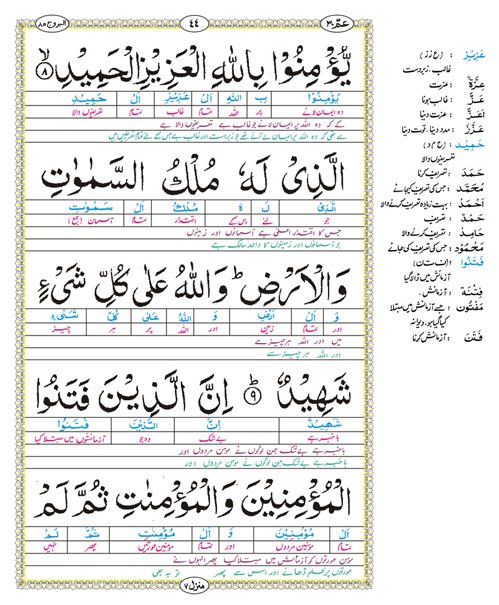 عمّ ۳۰
٤٤
البروج ۸۵
يُّؤْمِنُوْا بِاللّٰهِ الْعَزِيْزِ الْحَمِيْدِ ۸
يُؤْمِنُوْا بِ اللّٰهِ اَلْ عَزِيْزِ اَلْ حَمِيْدِ
وہ ایمان لائے پر اللہ تمام غالب تمام تعریفوں والا
الَّذِىْ لَهٗ مُلْكُ السَّمٰوٰتِ
الَّذِىْ لَ هٗ مُلْكُ اَلْ سَمٰوٰتِ
جو لئے اس کے اقتدار تمام آسمان (جمع)
جس کا اقتدار اعلیٰ ہے آسمانوں اور زمینوں
جو آسمانوں اور زمینوں کا واحد مالک ہے
وَالْاَرْضِ ؕ وَاللّٰهُ عَلٰى كُلِّ شَىْءٍ
وَ اَلْ اَرْضِ وَ اللّٰهُ عَلٰى كُلِّ شَىْءٍ
اور تمام زمین اور اللہ پر ہر چیز
میں اور اللہ ہر چیز سے
اور اللہ ہر چیز سے
شَهِيْدٌ ؕ ۹ اِنَّ الَّذِيْنَ فَتَنُوا
شَهِيْدٌ اِنَّ الَّذِيْنَ فَتَنُوْا
باخبر ہے بے شک وہ جو آزمائشوں میں مبتلا کیا
باخبر ہے بے شک جن لوگوں نے مومن مردوں اور
باخبر ہے بے شک جن لوگوں نے مومن مردوں اور
الْمُؤْمِنِيْنَ وَالْمُؤْمِنٰتِ ثُمَّ لَمْ
اَلْ مُؤْمِنِيْنَ وَ اَلْ مُؤْمِنٰتِ ثُمَّ لَمْ
تمام مومنین مردوں اور تمام مومنین عورتیں پھر نہیں
مومن عورتوں کو آزمائش میں مبتلا کیا پھر انہوں نے
عورتوں پر ظلم ڈھائے اور اس سے توبہ بھی
منزل ۷
عَزِيْزِ : (ع ز ز)
غالب، زبردست
عِزَّةٌ : عزت
عَزَّ : غالب ہونا
اَعَزَّ : عزت دینا
عَزَّزَ : مدد دینا، قوت دینا
حَمِيْدِ : (ح م د)
تعریفوں والا
حَمِدَ : تعریف کرنا
مُحَمَّد : جس کی تعریف کی جائے
اَحْمَدُ : بہت زیادہ تعریف کرنے والا
حَمْد : تعریف
حَامِد : تعریف کرنے والا
مَحْمُود : جس کی تعریف کی جائے
فَتَنُوْا : (ف ت ن)
آزمائش میں ڈالا گیا
فِتْنَة : آزمائش
مَفْتُون : جسے آزمائش میں مبتلا
کیا گیا ہو، دیوانہ
فَتَنَ : آزمائش کرنا